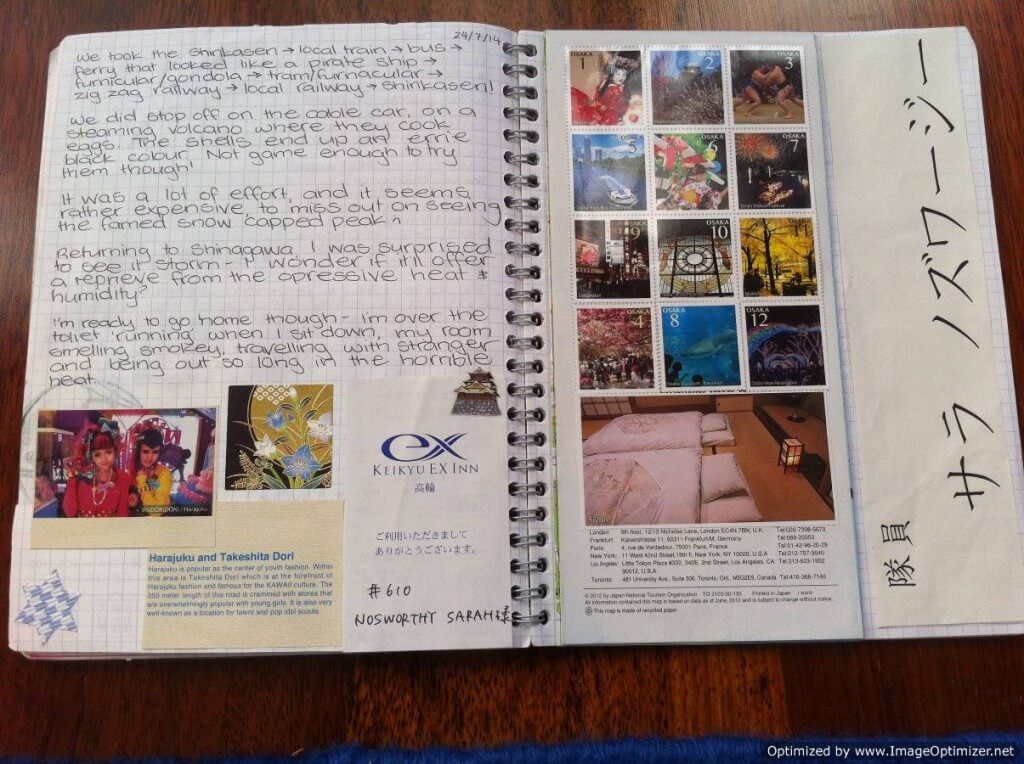 24/7/14
We took the shinkasen → local train → bus →
ferry that looked like a pirate ship →
furnicular/gondola → tram/furnacular →
zig zag railway → local railway → shinkasen!
We did stop off on the cable car, on a
steaming volcano where they cook
eggs. The shells end up an errie
black colour. Not game enough to try
them though!
It was a lot of effort, and it seems
rather expensive, to miss out on seeing
the famed snow capped peak
Returning to Shinagawa I was surprised
to see it storm - I wonder if it'll offer
a reprieve from the opressive heat &
humidity?
I'm ready to go home though - im over the
toliet 'running' when I sit down, my room
smelling smokey, travelling with stranger
and being out so long in the horrible
heat
Harajuku
Harajuku and Takeshita Dori
Harajuku is popular as the center of youth fashion. Within
this area is Takeshita Dori which is at the forefront of
Harajuku fashion and famous for the KAWAII culture. The
350 meter length of this road is crammed with stores that
are overwhelmingly popular with young girls. It is also very
well-known as a location for talent and pop idol scouts.
ex
KEIKYU EX INN
高輪
ご利用いただきまして
ありがとうございます。
#610
NOSWORTHY SARAH様
OSAKA 1
OSAKA 2
OSAKA 3
OSAKA 5
OSAKA 6
OSAKA 7
9
10
11
4
8
12
Futon
London: 5th floor, 12/13 Nicholas Lane, London EC4N 7BN, U.K.
Frankfurt: Kaiserstrasse 11, 60311 Frankfurt/M, Germany
Paris: 4, rue de Ventadour, 75001 Paris, France
New York: 11 West 42nd Street, 19th fl. New York, NY 10020, U.S.A
Los Angeles: Little Tokyo Plaza #302, 340E. 2nd Street, Los Angeles, CA
90012, U.S.A
Toronto: 481 University Ave., Suite 306, Toronto, Ont., M5G2E9, Canada Tel:416-366-7140
© 2012 by Japan National Tourism Organization Printed in Japan
All information contained this map is based on data as of June, 2012 and is subject to change without notice.
This map is made of recycled paper.
隊員 サラ ノズワージー
Optimized by www.ImageOptimizer.net